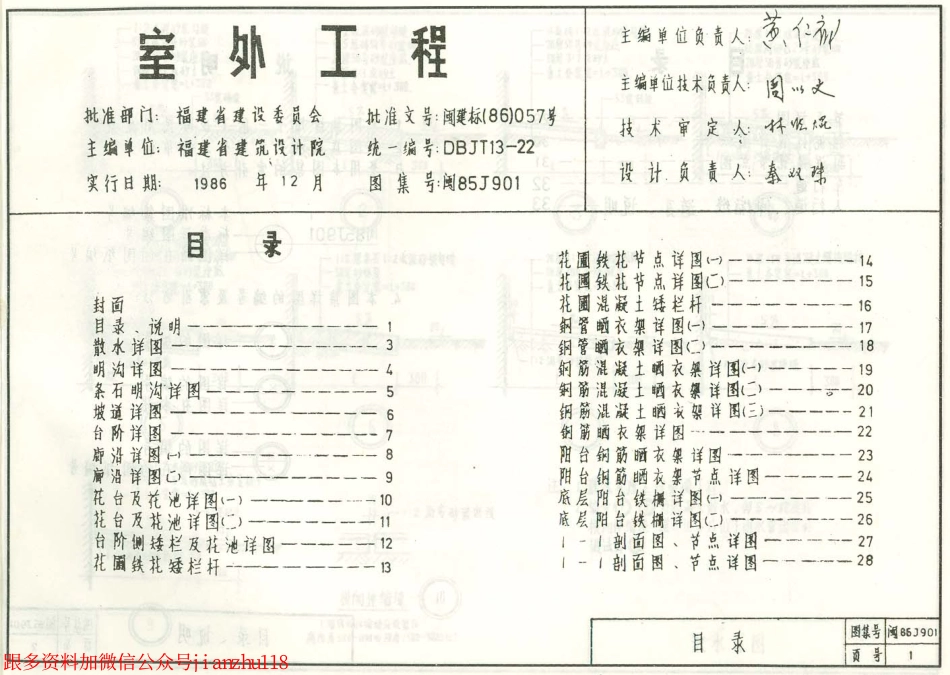 室外工程
批准部门: 福建省建设委员会 批准文号: 闽建标(86)057号
主编单位: 福建省建筑设计院 统一编号: DBJT13-22
实行日期: 1986 年 12 月 图集号: 闽85J901
主编单位负责人:
主编单位技术负责人: 周以文
技术审定人:
设计负责人:
目 录
封面
目录、说明 1
散水详图 3
明沟详图 4
条石明沟详图 5
坡道详图 6
台阶详图 7
廊沿详图(一) 8
廊沿详图(二) 9
花台及花池详图(一) 10
花台及花池详图(二) 11
台阶侧矮栏及花池详图 12
花圃铁花矮栏杆 13
花圃铁花节点详图(一) 14
花圃铁花节点详图(二) 15
花圃混凝土矮栏杆 16
钢管晒衣架详图(一) 17
钢管晒衣架详图(二) 18
钢筋混凝土晒衣架详图(一) 19
钢筋混凝土晒衣架详图(二) 20
钢筋混凝土晒衣架详图(三) 21
钢筋晒衣架详图 22
阳台钢筋晒衣架详图 23
阳台钢筋晒衣架节点详图 24
底层阳台铁栅详图(一) 25
底层阳台铁栅详图(二) 26
1-1剖面图、节点详图 27
1-1剖面图、节点详图 28
目 录
图集号 闽86J901
页 号 1
跟多资料加微信公众号jianzhu118